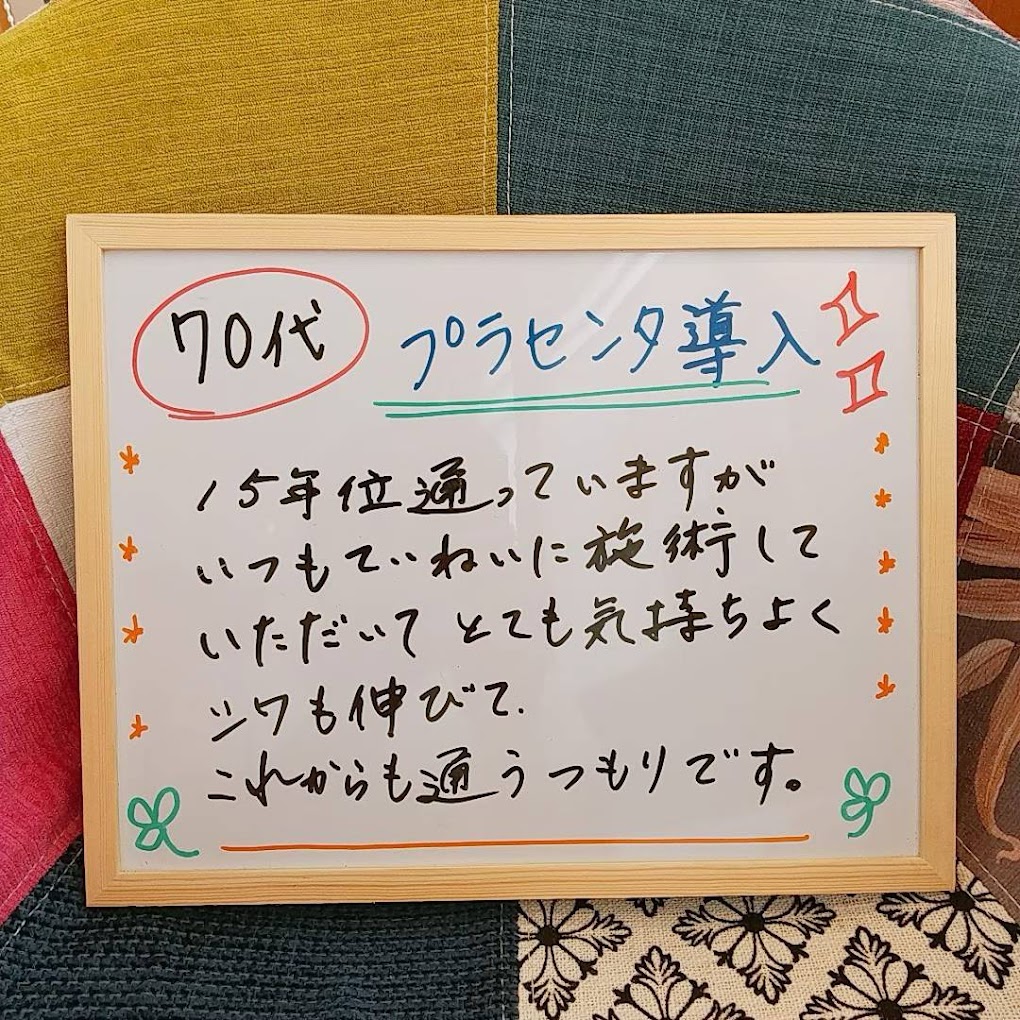 70代 プラセンタ導入
15年位通っていますが
いつもていねいに施術して
いただいてとても気持ちよく
シワも伸びて.
これからも通うつもりです。